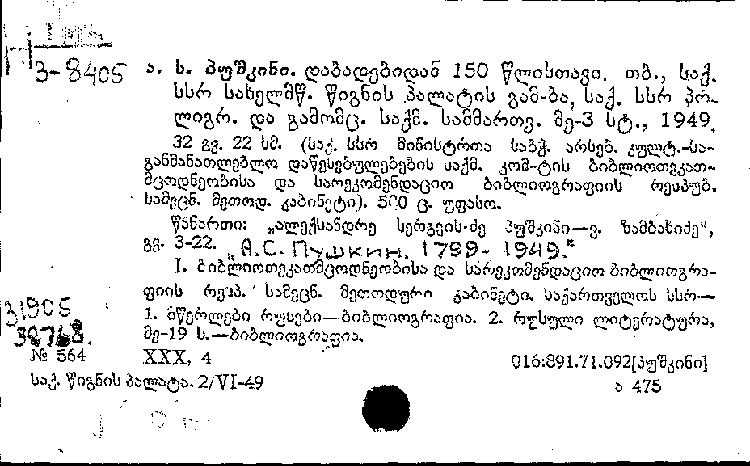 პ-8405
ა. ს. პუშკინი. დაბადებიდან 150 წლისთავი. თბ., საქ.
სსრ სახელმწ. წიგნის პალატის გამ-ბა, საქ. სსრ პო-
ლიგრ. და გამომც. საქმ. სამმართვ. მე-3 სტ., 1949.
32 გვ. 22 სმ. (საქ. სსრ მინისტრთა საბჭ. არსებ. კულტ.-სა-
განმანათლებლო დაწესებულებების საქმ. კომ-ტის ბიბლიოთეკათ-
მცოდნეობისა და სარეკომენდაციო ბიბლიოგრაფიის რესპუბ.
სამეცნ. მეთოდ. კაბინეტი). 500 ც. უფასო.
წინართი: „ალექსანდრე სერგეის-ძე პუშკინი—ვ. ზამბახიძე",
გვ. 3-22. „А.С. Пушкин. 1799-1949."
I. ბიბლიოთეკათმცოდნეობისა და სარეკომენდაციო ბიბლიოგრა-
ფიის რესპ. სამეცნ. მეთოდური კაბინეტი. საქართველოს სსრ—
31905
1. მწერლები რუსები—ბიბლიოგრაფია. 2. რუსული ლიტერატურა,
მე-19 ს.—ბიბლიოგრაფია.
№ 564
XXX, 4
016:891.71.092[პუშკინი]
საქ. წიგნის პალატა. 2/VI-49
ა 475